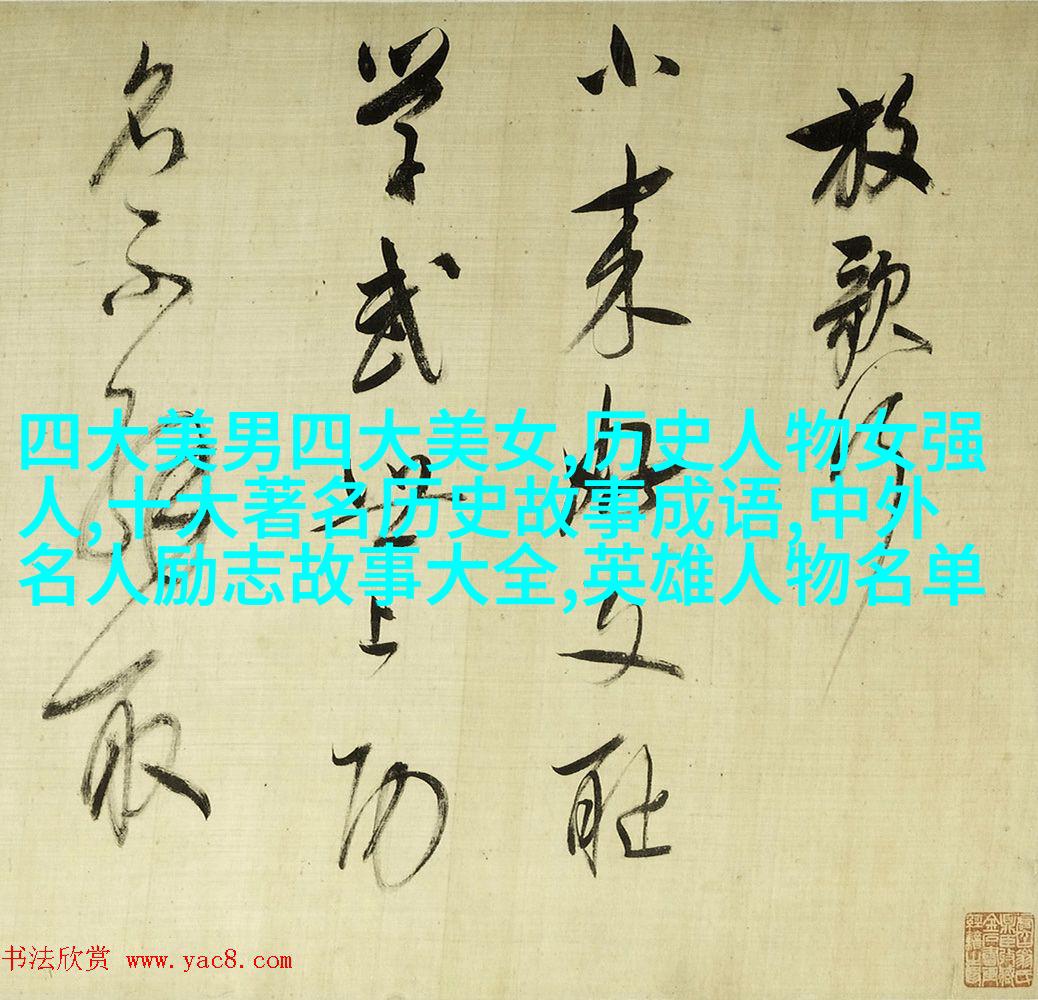 放歌行
小来文耻
学武世上功
名不解取
四大美男四大美女,历史人物女强
人,十大著名历史故事成语,中外
名人励志故事大全,英雄人物名单
书法欣赏 www.yac8.com